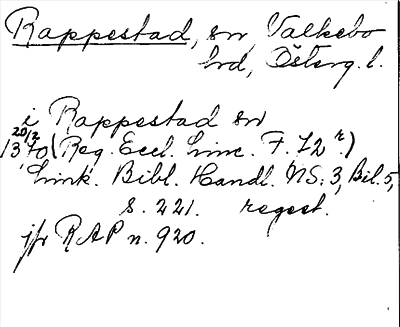 Rappestad, sn, Valkebo
hd, Österg. l.
i Rappestad sn
20/2
1370 (Reg. Eccl. Linc. F. 72 r.)
Link. Bibl. Handl. NS: 3, Bil. 5,
s. 221. regest.
jfr RAP n. 920.